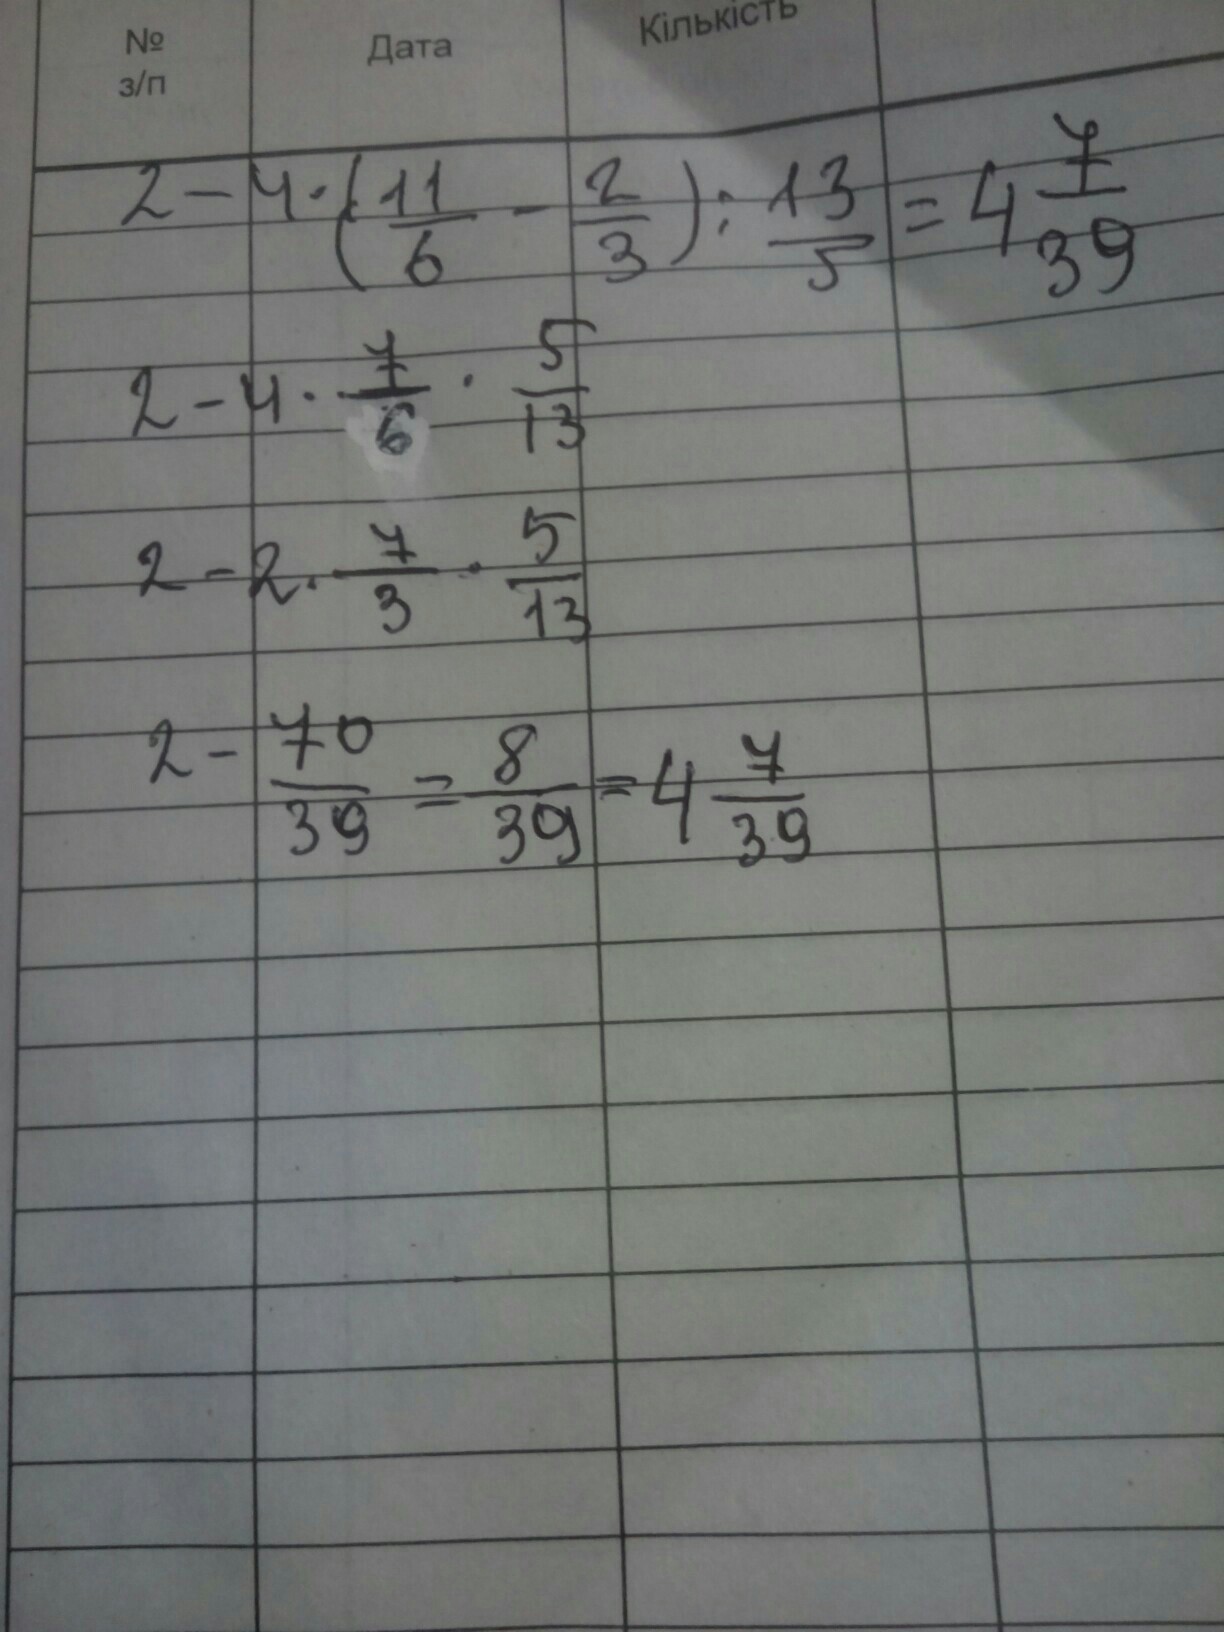 № з/п Дата Кількість
2 - 4 · (11/6 - 2/3) : 13/5 = 4 7/39
2 - 4 · 7/6 · 5/13
2 - 2 · 7/3 · 5/13
2 - 70/39 = 8/39 = 4 7/39